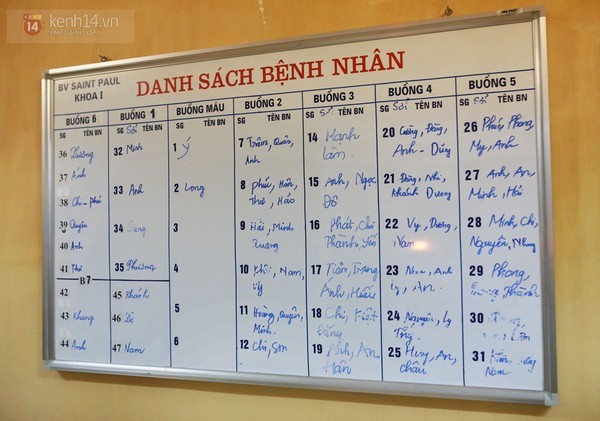 kenh14.vn
BV SAINT PAUL
KHOA I
DANH SÁCH BỆNH NHÂN
BUỒNG 6
SG TÊN BN
36 Phương
37 Ánh
38 Chi - phú
39 Quyên
40 Anh
41 Thư
B7
42
43 Khang
44 Anh
BUỒNG 1
SG Sởi TÊN BN
32 Minh
33 Anh
34
35 Phương
45 Khánh
46
47 Nam
BUỒNG MÁU
SG TÊN BN
1 Ý
2 Long
3
4
5
6
BUỒNG 2
SG TÊN BN
7 Trâm, Quân,
Anh
8 phúc, Hân,
Thư, Hảo
9 Hải, Minh
Quang
10 Khôi, Nam,
Vỹ
11 Hoàng, Quyên,
Minh
12 Chi, Sơn
BUỒNG 3
SG Sởi TÊN BN
14 Mạnh
Lâm
15 Anh, Ngọc
Đô
16 Phát, Chi
Thành,
17 Tiến, Trang
Anh, Hiếu
18 Chi, Kiệt
19 Anh, An
Hân
BUỒNG 4
SG Sởi TÊN BN
20 Cường, Đăng,
Anh - Dũng
21 Đăng, Nhi,
Khánh Dương
22 Vy, Dương,
Nam
23 Như, Anh
Ly, An
24 Nguyên, Ly
25 Huy, An,
châu
BUỒNG 5
SG Sởi TÊN BN
26 Phúc, Phong
My, Anh
27 Anh, An
Minh, Hải
28 Minh, Chi,
Nguyên,
29 Phong,
Thành
30
31
Nam